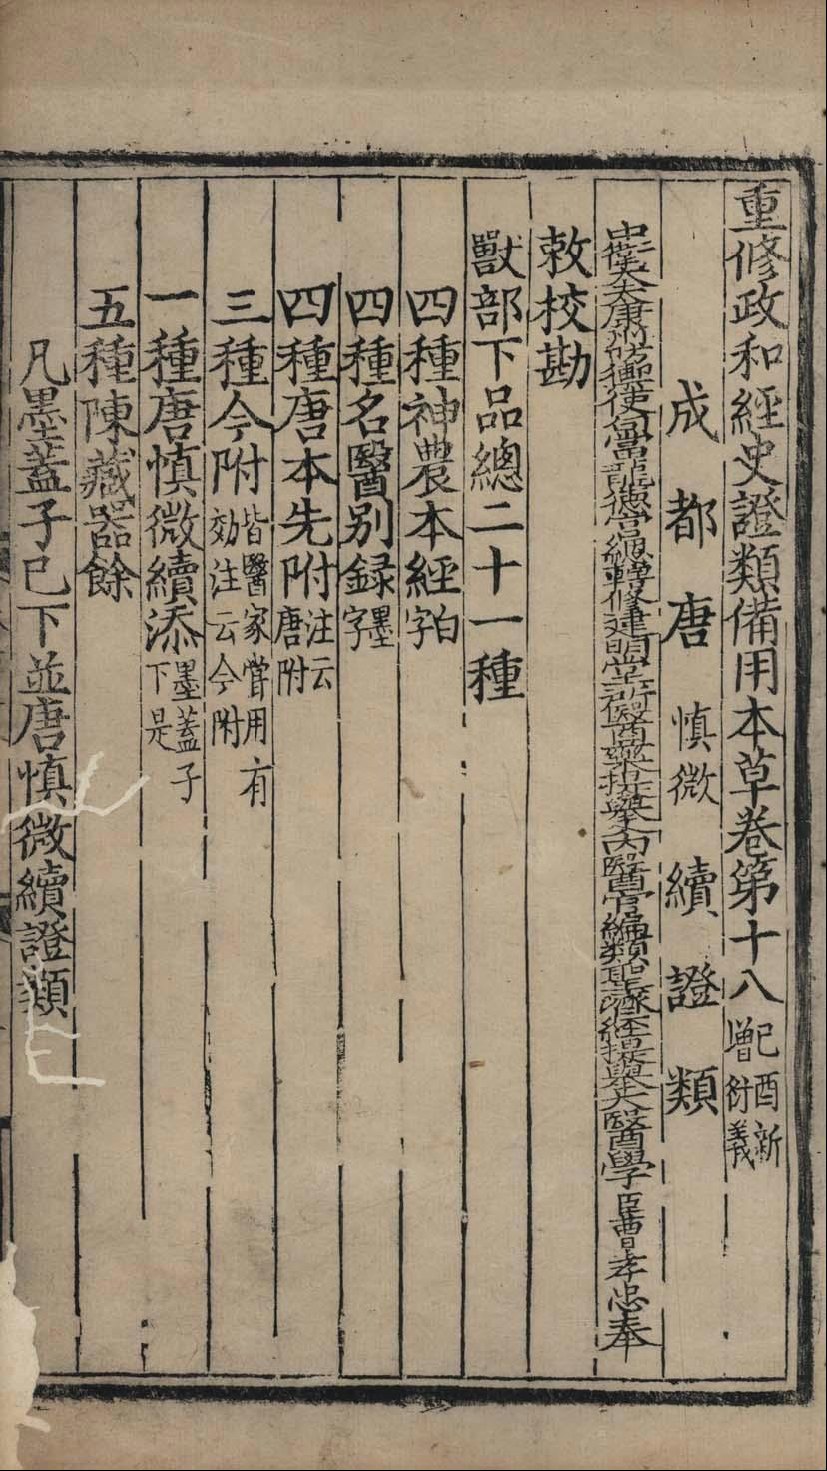 重修政和經史證類備用本草卷第十八己酉新增衍義
成都唐慎微續證類
中衛大夫康州防禦使句當龍德宮總轄修建明堂所醫藥提舉入內醫官編類聖濟經提舉太醫學臣曹孝忠奉
敕校勘
獸部下品總二十一種
四種神農本經白字
四種名醫別録墨字
四種唐本先附注云唐附
三種今附皆醫家嘗用有効注云今附
一種唐慎微續添墨蓋子下是
五種陳藏器餘
凡墨蓋子已下並唐慎微續證類